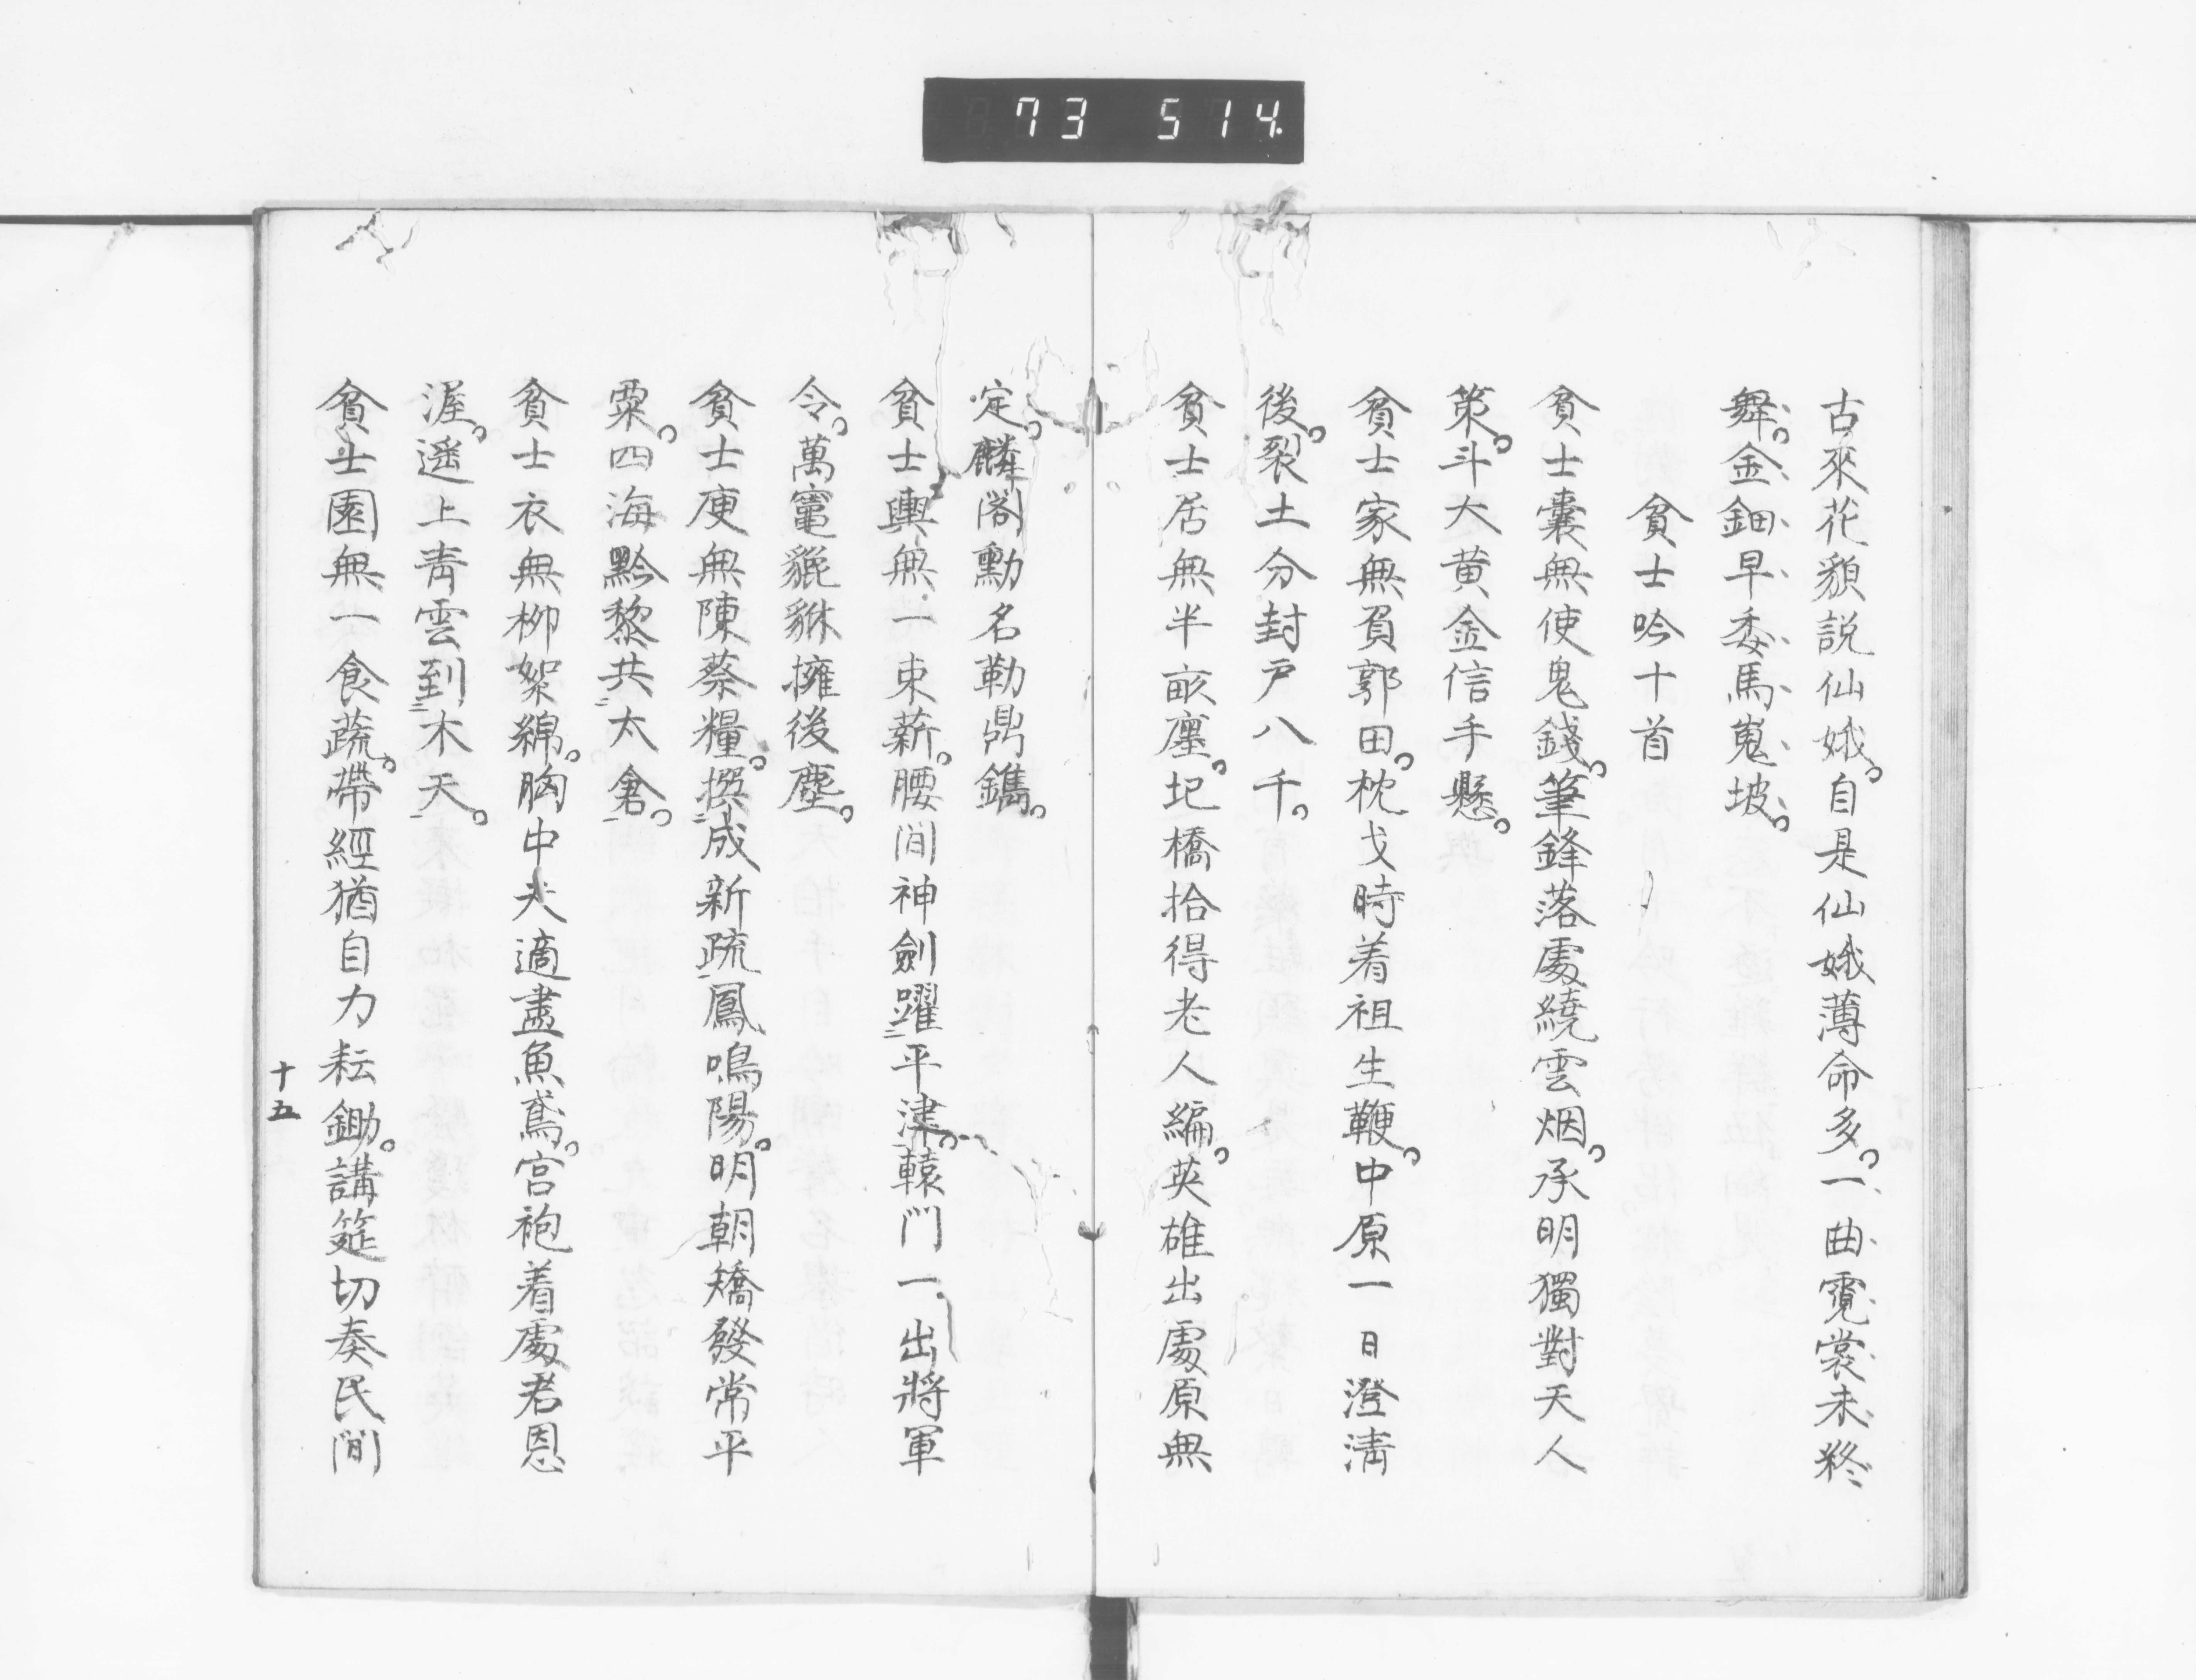 73 514
古來花貌説仙娥。自是仙娥薄命多。一曲霓裳未終
舞。金鈿早委馬嵬坡。
貧士吟十首
貧士囊無使鬼錢。筆鋒落處繞雲烟。承明獨對天人
策。斗大黄金信手懸。
貧士家無負郭田。枕戈時着祖生鞭。中原一日澄清
後。裂土分封戸八千。
貧士居無半畝廛。圯橋拾得老人編。英雄出處原無
定。麟閣勳名勒鼎鐫。
貧士輿無一束薪。腰間神劍躍平津。轅門一出將軍
令。萬竈貔貅擁後塵。
貧士庾無陳蔡糧。撰成新疏鳳鳴陽。明朝矯發常平
粟。四海黔黎共太倉。
貧士衣無柳絮綿。胸中天適盡魚鳶。宮袍着處君恩
渥。遥上青雲到木天。
貧士園無一食蔬。帶經猶自力耘鋤。講筵切奏民間
十五